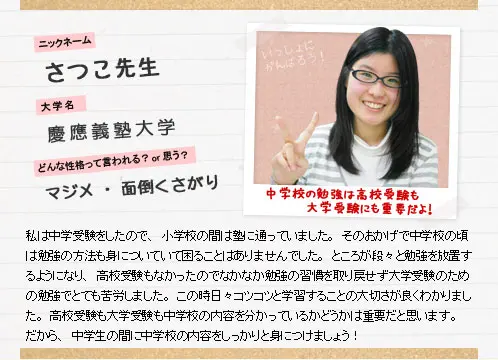 ニックネーム
さつこ先生
大学名
慶應義塾大学
どんな性格って言われる？or 思う？
マジメ ・ 面倒くさがり
いっしょに
がんばろう！
中学校の勉強は高校受験も
大学受験にも重要だよ!
私は中学受験をしたので、小学校の間は塾に通っていました。そのおかげで中学校の頃
は勉強の方法も身についていて困ることはありませんでした。ところが段々と勉強を放置す
るようになり、高校受験もなかったのでなかなか勉強の習慣を取り戻せず大学受験のため
の勉強でとても苦労しました。この時日々コツコツと学習することの大切さが良くわかりまし
た。高校受験も大学受験も中学校の内容を分かっているかどうかは重要だと思います。
だから、中学生の間に中学校の内容をしっかりと身につけましょう！